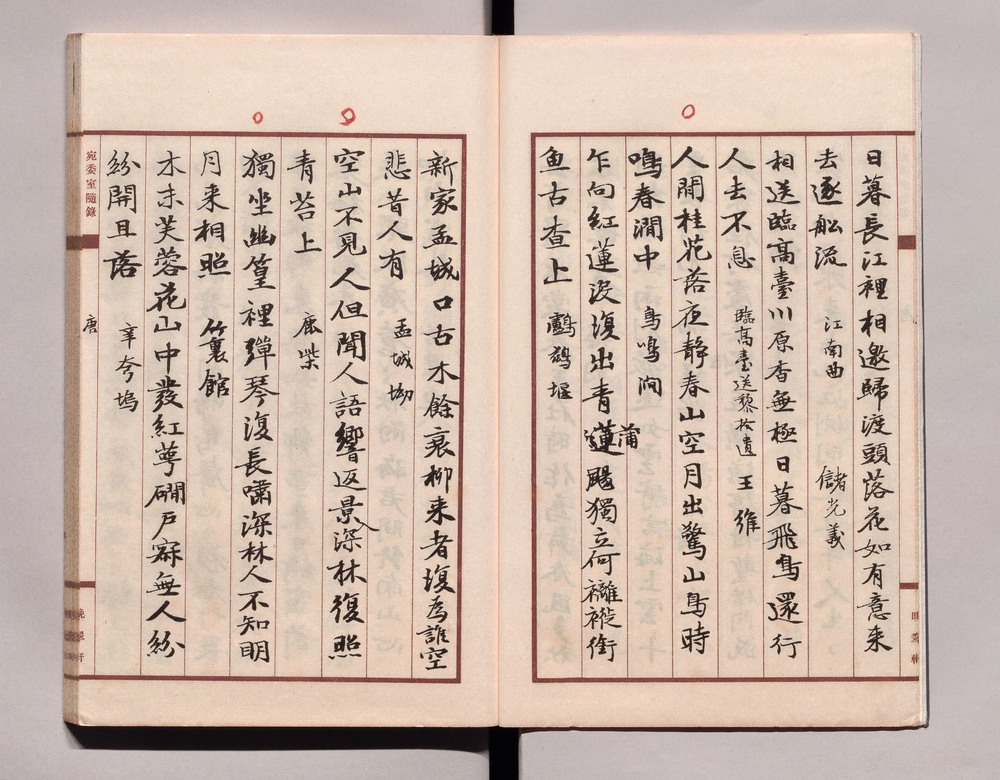 日暮長江裡相邀歸渡頭落花如有意来
去逐船流 江南曲 儲光羲
相送臨高臺川原杳無極日暮飛鳥還行
人去不息 臨高臺送黎拾遺 王維
人閒桂花落夜靜春山空月出驚山鳥時
鳴春澗中 鳥鳴澗
乍向紅蓮没復出青蓮蒲飏獨立何褵褷銜
魚古查上 鸕鷀堰
新家孟城口古木餘衰柳来者復為誰空
悲昔人有 孟城坳
空山不見人但聞人語響返景入深林復照
青苔上 鹿柴
獨坐幽篁裡彈琴復長嘯深林人不知明
月来相照 竹裏館
木末芙蓉花山中發紅萼磵戶寂無人紛
紛開且落 辛夸塢
宛委室隨錄
唐